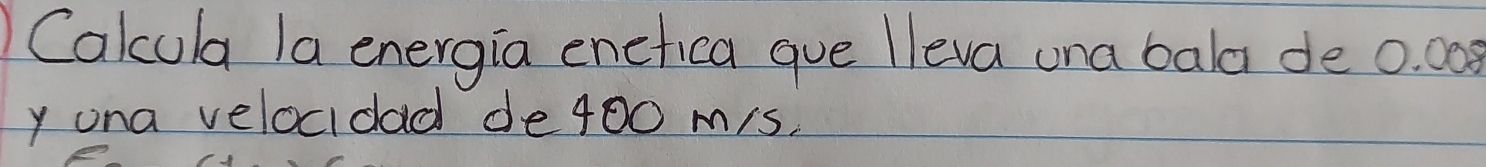 Calcula la energía enetica que lleva una bala de 0.008
y una velocidad de 400 m/s.